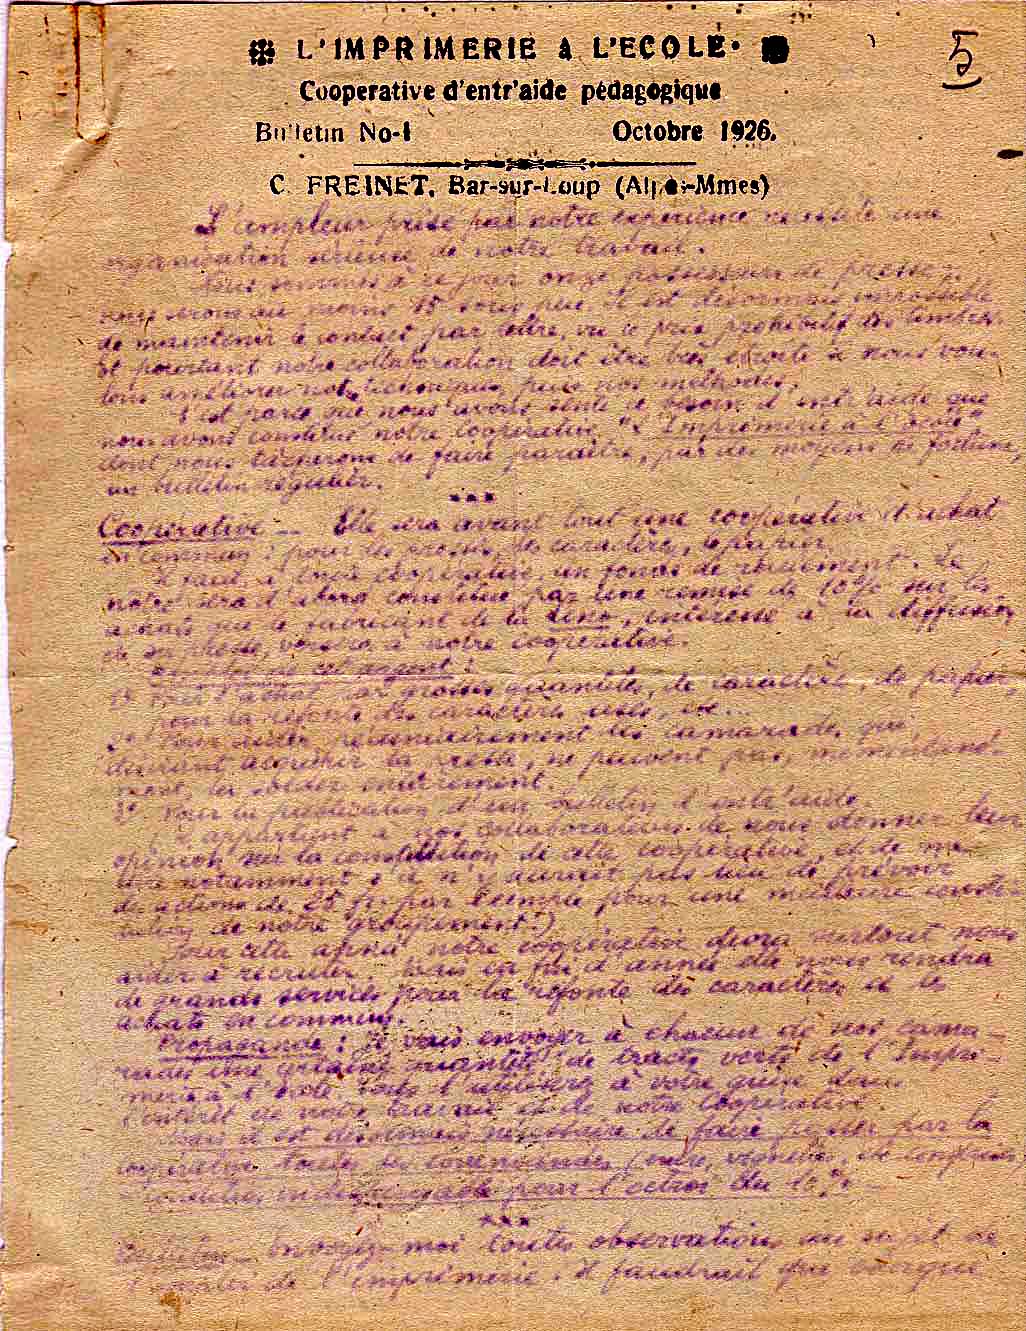 L'IMPRIMERIE à L'ECOLE
5
Cooperative d'entr'aide pédagogique
Bulletin No-1 Octobre 1926.
C. FREINET, Bar-sur-Loup (Alpes-Mmes)
L'ampleur prise par notre expérience nécessite une
organisation sérieuse de notre travail.
Nous sommes à ce jour onze possesseurs de presse;
nous serons au moins 15 sous peu. Il est désormais impossible
de maintenir le contact par lettre, vu le prix prohibitif des timbres.
Et pourtant notre collaboration doit être très étroite si nous vou-
lons améliorer notre technique, puis nos méthodes.
C'est parce que nous avons senti ce besoin d'entr'aide que
nous avons constitué notre coopérative "L'Imprimerie à l'école"
dont nous tâcherons de faire paraître, par des moyens de fortune,
un bulletin régulier.
***
Coopérative _ Elle sera avant tout une coopérative d'achat
en commun: pour les presses, les caractères, le papier.
Il faut à toute coopérative un fonds de roulement. Le
nôtre sera d'abord constitué par une remise de 10% sur les
achats que le fabricant de la CINUP, intéressé à la diffusion
de sa presse, versera à notre coopérative.
1° Pour l'achat par grosses quantités, de caractères, de papier,
pour la refonte des caractères usés, etc...
2° Pour aider pécuniairement les camarades qui
désirant acquérir la presse, ne peuvent pas, momentané-
ment, la solder entièrement.
3° Pour la publication d'un bulletin d'entr'aide.
Il appartient à nos collaborateurs de nous donner leur
opinion sur la constitution de cette coopérative, et de me
dire notamment s'il n'y aurait pas lieu de prévoir
des actions de 25 fr. par exemple pour une meilleure consti-
tution de notre groupement?)
Pour cette année notre coopérative devra surtout nous
aider à recruter. Mais en fin d'année elle nous rendra
de grands services pour la refonte des caractères et les
achats en commun.
Propagande: Je vais envoyer à chacun de nos cama-
rades une certaine quantité de tracts verts de l'Impri-
merie à l'école. Vous l'utiliserez à votre guise dans
l'intérêt de notre travail et de notre Coopérative.
Mais il est désormais nécessaire de faire passer par la
coopérative toutes les commandes
formalité indispensable pour l'octroi du 10%.
***
envoyez-moi toutes observations au sujet de
l'emploi de l'imprimerie. Il faudrait que chaque